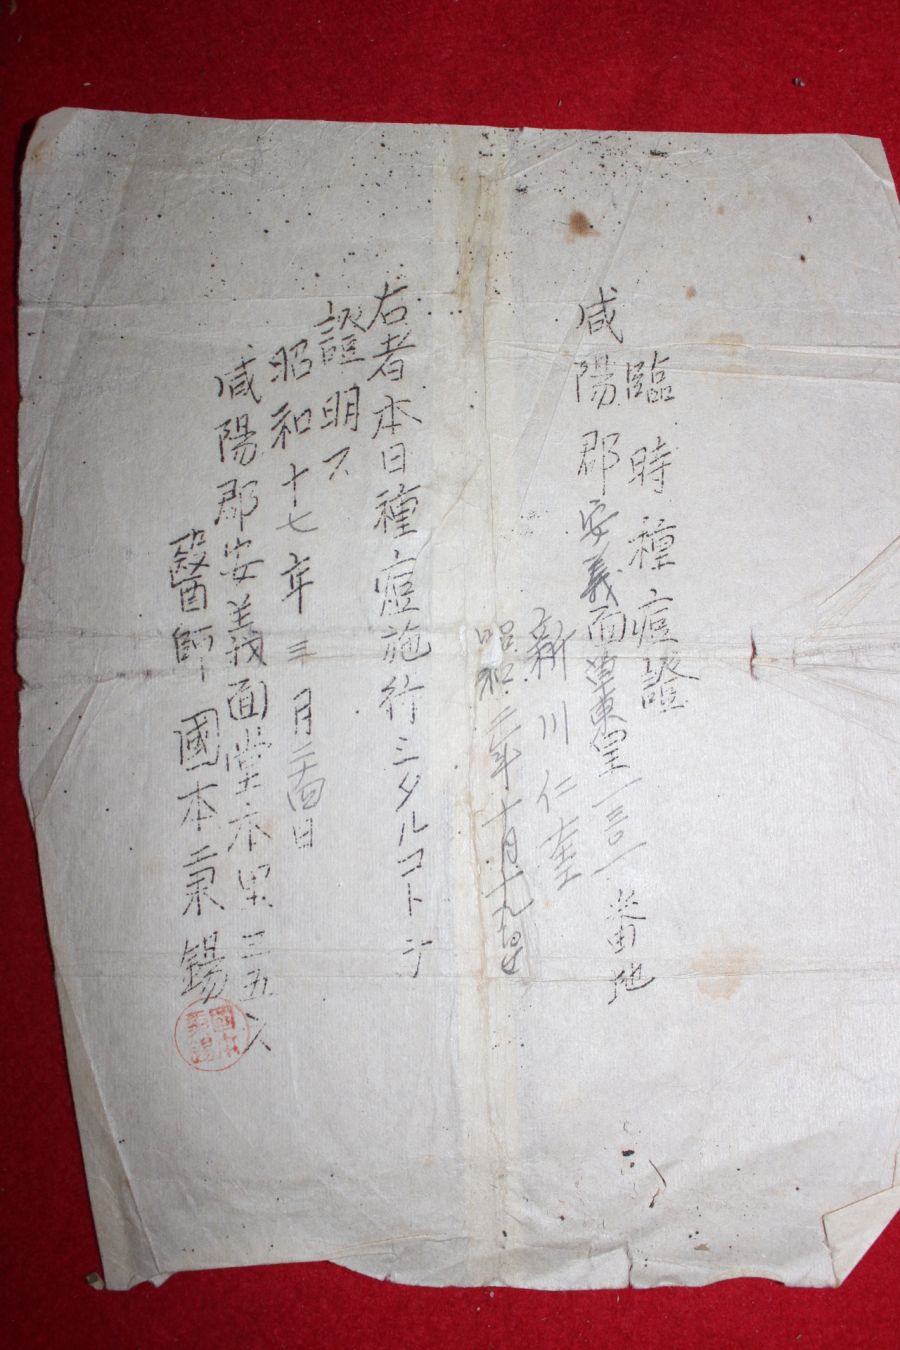 臨時種痘證
咸陽郡安義面 東里一三〇一番地
新川仁奎
昭和二年十月十九日生
右者本日種痘施行シタルコトヲ
證明ス
昭和十七年三月二十四日
咸陽郡安義面堂本里三五六
醫師 國本秉錫
國本秉錫